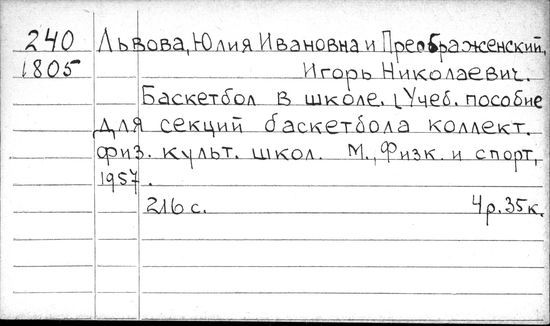 240 Львова, Юлия Ивановна и Преображенский,
1805 Игорь Николаевич.
Баскетбол в школе. [Учеб. пособие
для секций баскетбола коллект.
физ. культ. школ. М., Физк. и спорт,
1957.
216 с. 4р. 35к.